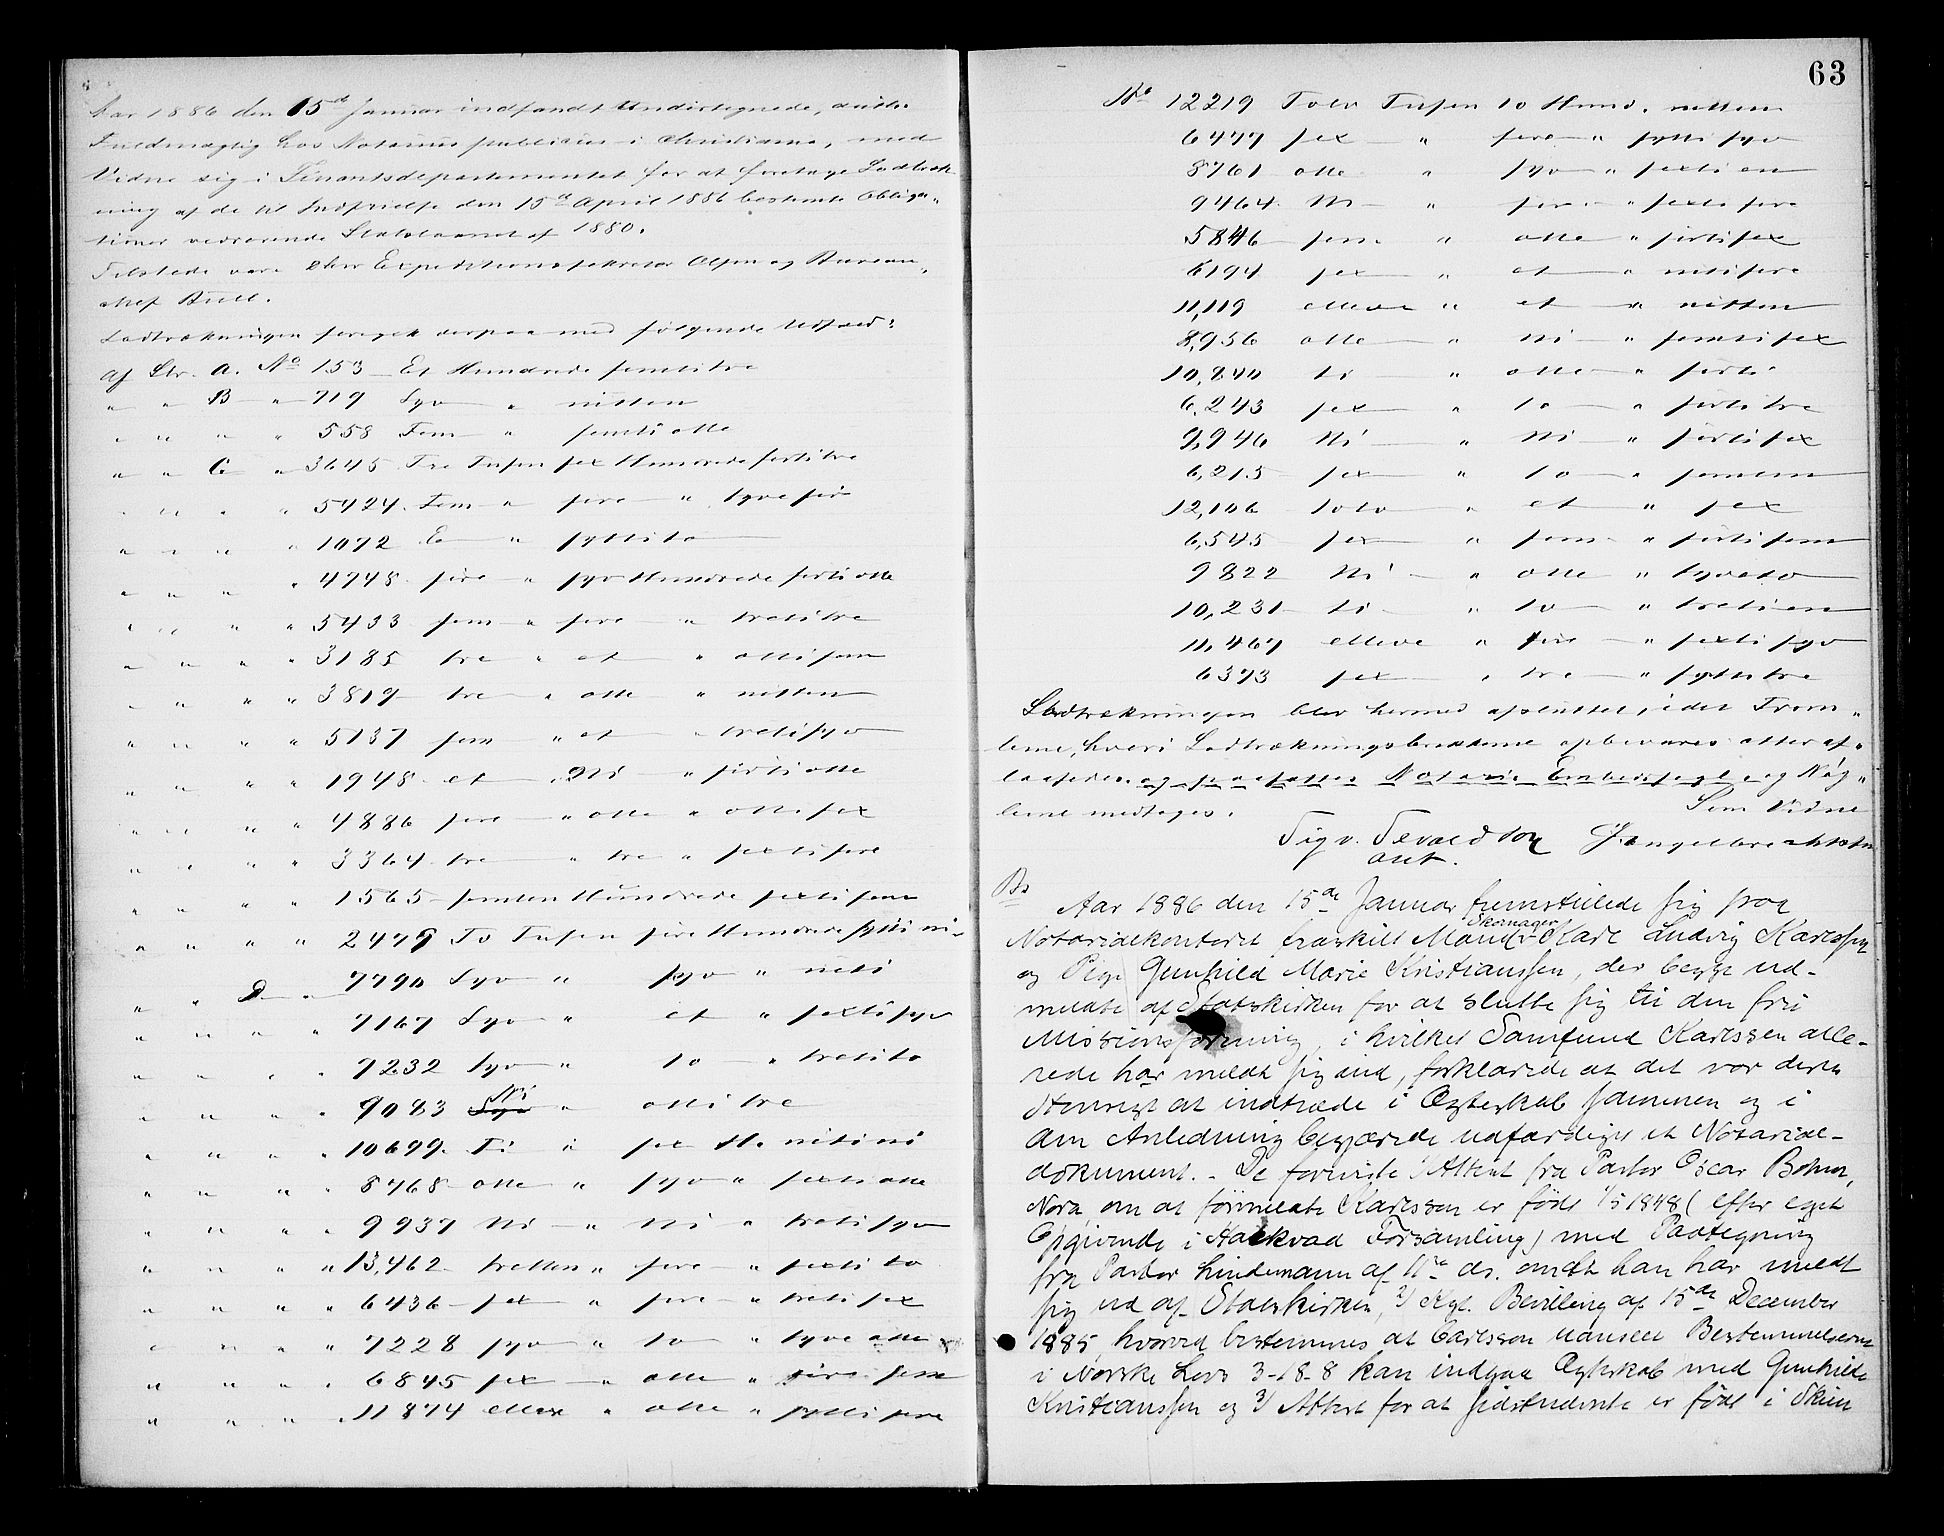 Aar 1886 den 15de Januar indfandt Undertegnede, auth.
Fuldmægtig hos Notarius publicus i Christiania, med
Vidne sig i Finantsdepartementet for at foretage Lodtræk-
ning af de til Indfrielse den 15de April 1886 bestemte Obliga-
tioner vedrørende Statslaanet af 1880.
Tilstede vare Dhrr Expeditionssekretær Olsen og Bureau-
chef Bull.
Lodtrækningen foregik derpaa med følgende Udfald:
Af Ltr. A. No 153 Et Hundrede femtitre
" " B " 719 Syv " nitten
" " " " 558 Fem " femti otte
" " C " 3645 Tre Tusen sex Hundrede førtifem
" " " " 5424 Fem " fire " tyvefire
" " " " 1072 Et " sytti to
" " " " 4748 fire " syv Hundrede førti otte
" " " " 5433 fem " fire " tretitre
" " " " 3185 tre " et " ottifem
" " " " 3819 tre " otte " nitten
" " " " 5137 fem " et " tretisyv
" " " " 1948 et " Ni " førtiotte
" " " " 4886 fire " otte " ottisex
" " " " 3364 tre " tre " sextifire
" " " " 1565 femten Hundrede sextifem
" " " " 2479 To Tusen fire Hundrede sytti ni
" " D " 7790 Syv " syv " niti
" " " " 7167 Syv " et " sextisyv
" " " " 7232 Syv " to " tretito
" " " " 9083 Syv Ni " ottitre
" " " " 10699 Ti " sex H. nitini
" " " " 8768 otte " syv " sextiotte
" " " " 9937 Ni " Ni " tretisyv
" " " " 13,462 tretten " fire " sextito
" " " " 6436 sex " fire " tretisex
" " " " 7228 syv " to " tyveotte
" " " " 6845 sex " otte " førtifem
" " " " 11874 elleve " otte " syttifire
63
No 12219 Tolv Tusen to Hund. nitten
6477 sex " fire " sytti syv
8761 otte " syv " sexti en
9464 Ni " fire " sexti fire
5846 fem " otte " førtisex
6194 sex " et " nitifire
11,119 elleve " et " nitten
8,956 otte " Ni " femtisex
10,840 ti " otte " førti
6,243 sex " to " førtitre
9,946 Ni " Ni " førtisex
6,215 sex " to " femten
12,106 tolv " et " sex
6,545 sex " fem " førtifem
9822 Ni " otte " tyveto
10,231 ti " to " tretien
11,467 elleve " fire " sextisyv
6373 sex " tre " syttitre
Lodtrækningen blev hermed afsluttet, idet Trom-
lerne, hvori Lodtrækningsbrikkerne opbevares atter af-
laasedes og paasattes Notarii Embedssegl og Nøg-
lerne medtoges.
Som Vidne
Sigv. Tevaldson
aut.
Aar 1886 den 15de Januar fremstillede sig paa
Notarialkontoret fraskilt Mand Skomager Karl Ludvig Karlssen
og Pige Gunhild Marie Kristianssen, der begge ud-
meldte af Statskirken for at slutte sig til den fri
Missionsforening, i hvilket Samfund Karlssen alle-
rede har meldt sig ind, forklarede at det var deres
Hensigt at indtræde i Ægteskab sammen og i
den Anledning begjærede udfærdiget et Notarial-
dokument. De foreviste 1/ Attest fra Pastor Oscar Bohm,
Nora, om at førmeldte Karlsson er født 1/5 1848 (efter eget
Opgivende i Hackvad Forsamling) med Paategning
fra Pastor Lindemann af 11te ds. om at han har meldt
sig ud af Statskirken, 2/ Kgl. Bevilling af 15de December
1885, hvorved bestemmes at Carlsson uanseet Bestemmelserne
i Norske Lovs 3-18-8 kan indgaa Ægteskab med Gunhild
Kristianssen og 3/ Attest for at sidstnævnte er født i Skien